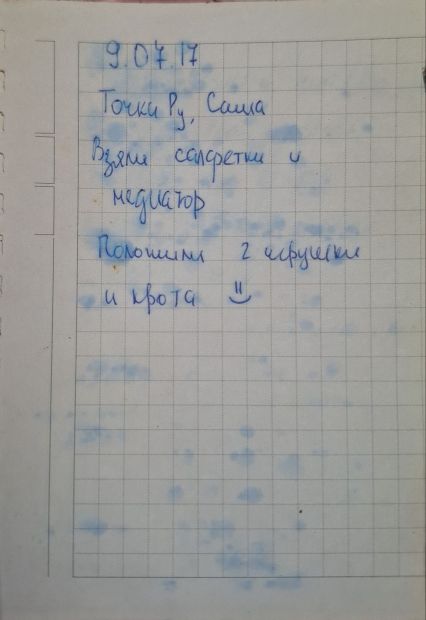 9.07.17
Точки Ру, Саша
Взяли салфетки и
медиатор
Положили 2 игрушки
и крота